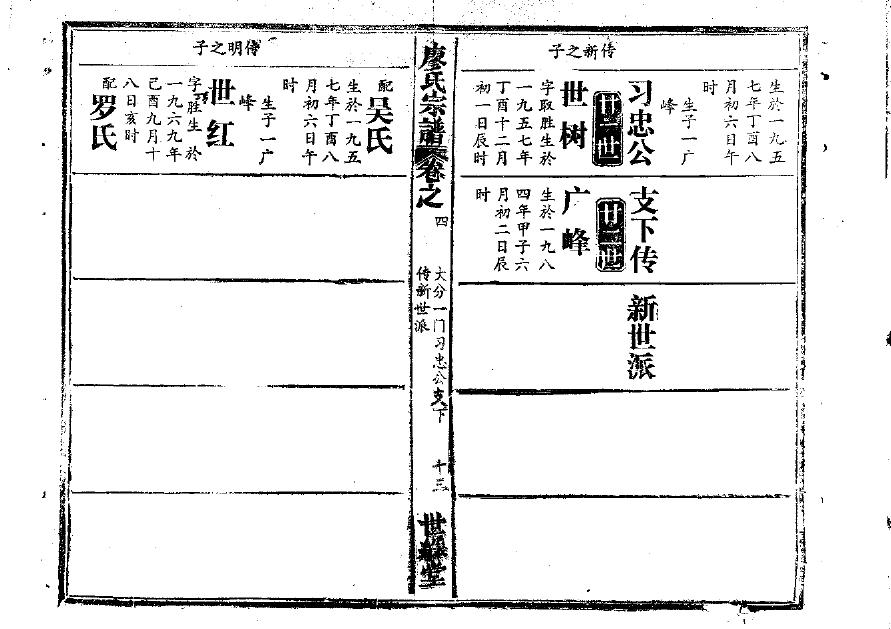 传新之子
生於一九五
七年丁酉八
月初六日午
时
生子一广
峰
习忠公
支下传
新世派
廿一世
世树
字取胜生於
一九五七年
丁酉十二月
初一日辰时
廿二世
广峰
生於一九八
四年甲子六
月初二日辰
时
廖氏宗谱卷之四
大分一门习忠公支下
传新世派
十三
传明之子
配吴氏
生於一九五
七年丁酉八
月初六日午
时
生子一广
峰
世红
字胜生於
一九六九年
己酉九月十
八日亥时
配罗氏